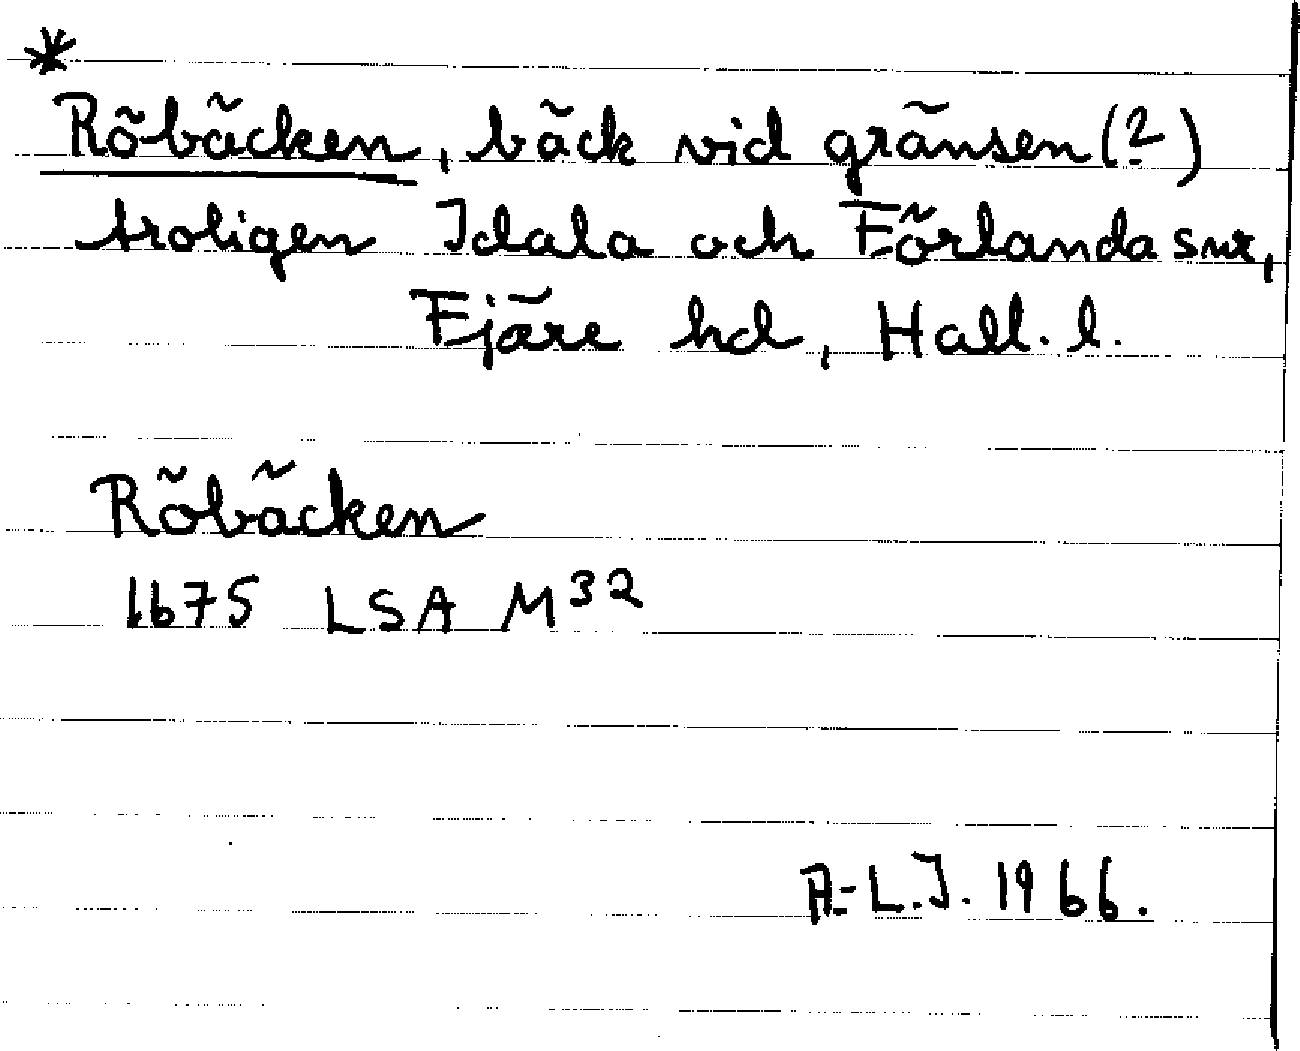 *
Röbäcken, bäck vid gränsen (?)
troligen Idala och Förlanda snr,
Fjäre hd, Hall. l.
Röbäcken
1675 LSA M³²
A.-L.J. 1966.